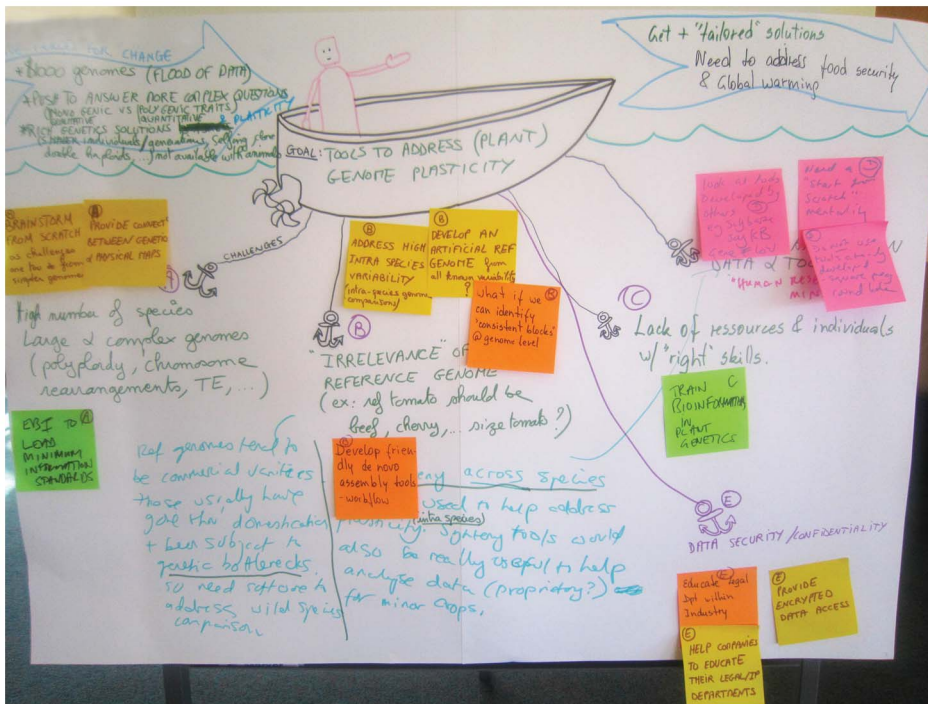 FOR CHANGE
+ $1000 genomes (FLOOD OF DATA)
TO ANSWER MORE COMPLEX QUESTIONS
MONOGENIC VS POLYGENIC TRAITS
QUANTITATIVE
& PLASTICITY
*RICH GENETICS SOLUTIONS
individuals/generations, selfing,
double haploids.... not available with animals
Get + "tailored" solutions
Need to address food security
& Global Warming
GOAL: TOOLS TO ADDRESS (PLANT)
GENOME PLASTICITY
CHALLENGES
BRAINSTORM
FROM SCRATCH
as challenges
are too ≠ from
simpler genomes
A
PROVIDE CONNECT°
BETWEEN GENETIC
& PHYSICAL MAPS
A
High number of species
Large & complex genomes
(polyploidy, chromosome
rearrangements, TE, ...)
EBI TO
LEAD
MINIMUM
INFORMATION
STANDARDS
A
B
ADDRESS HIGH
INTRA SPECIES
VARIABILITY
(intra-species genome
comparisons)
B
DEVELOP AN
ARTIFICIAL REF
GENOME from
all known variability
?
What if we
can identify
"consistent blocks"
@ genome level
B
"IRRELEVANCE" OF
REFERENCE GENOME
(ex: ref tomato should be
beef, cherry, ... size tomato?)
Develop frien-
dly de novo
assembly tools
- workflow
Ref genomes tend to
be commercial varieties
those usually have
gone thru domestication
+ been subject to
genetic bottlenecks.
so need software to
address wild species
comparison.
across species
used to help address
plasticity. (intra species) Synteny tools would
also be really useful to help
analyse data (proprietary?)
for minor crops.
look at tools
developed by
others
Need a
"Start from
scratch"
mentality
DATA & 
"HUMAN
C
Lack of ressources & individuals
w/ "right" skills.
TRAIN C
BIOINFORMATICS
IN
PLANT
GENETICS
E
DATA SECURITY/CONFIDENTIALITY
E
Educate legal
Dpt within
Industry
E
PROVIDE
ENCRYPTED
DATA ACCESS
E
HELP COMPANIES
TO EDUCATE
THEIR LEGAL/IP
DEPARTMENTS